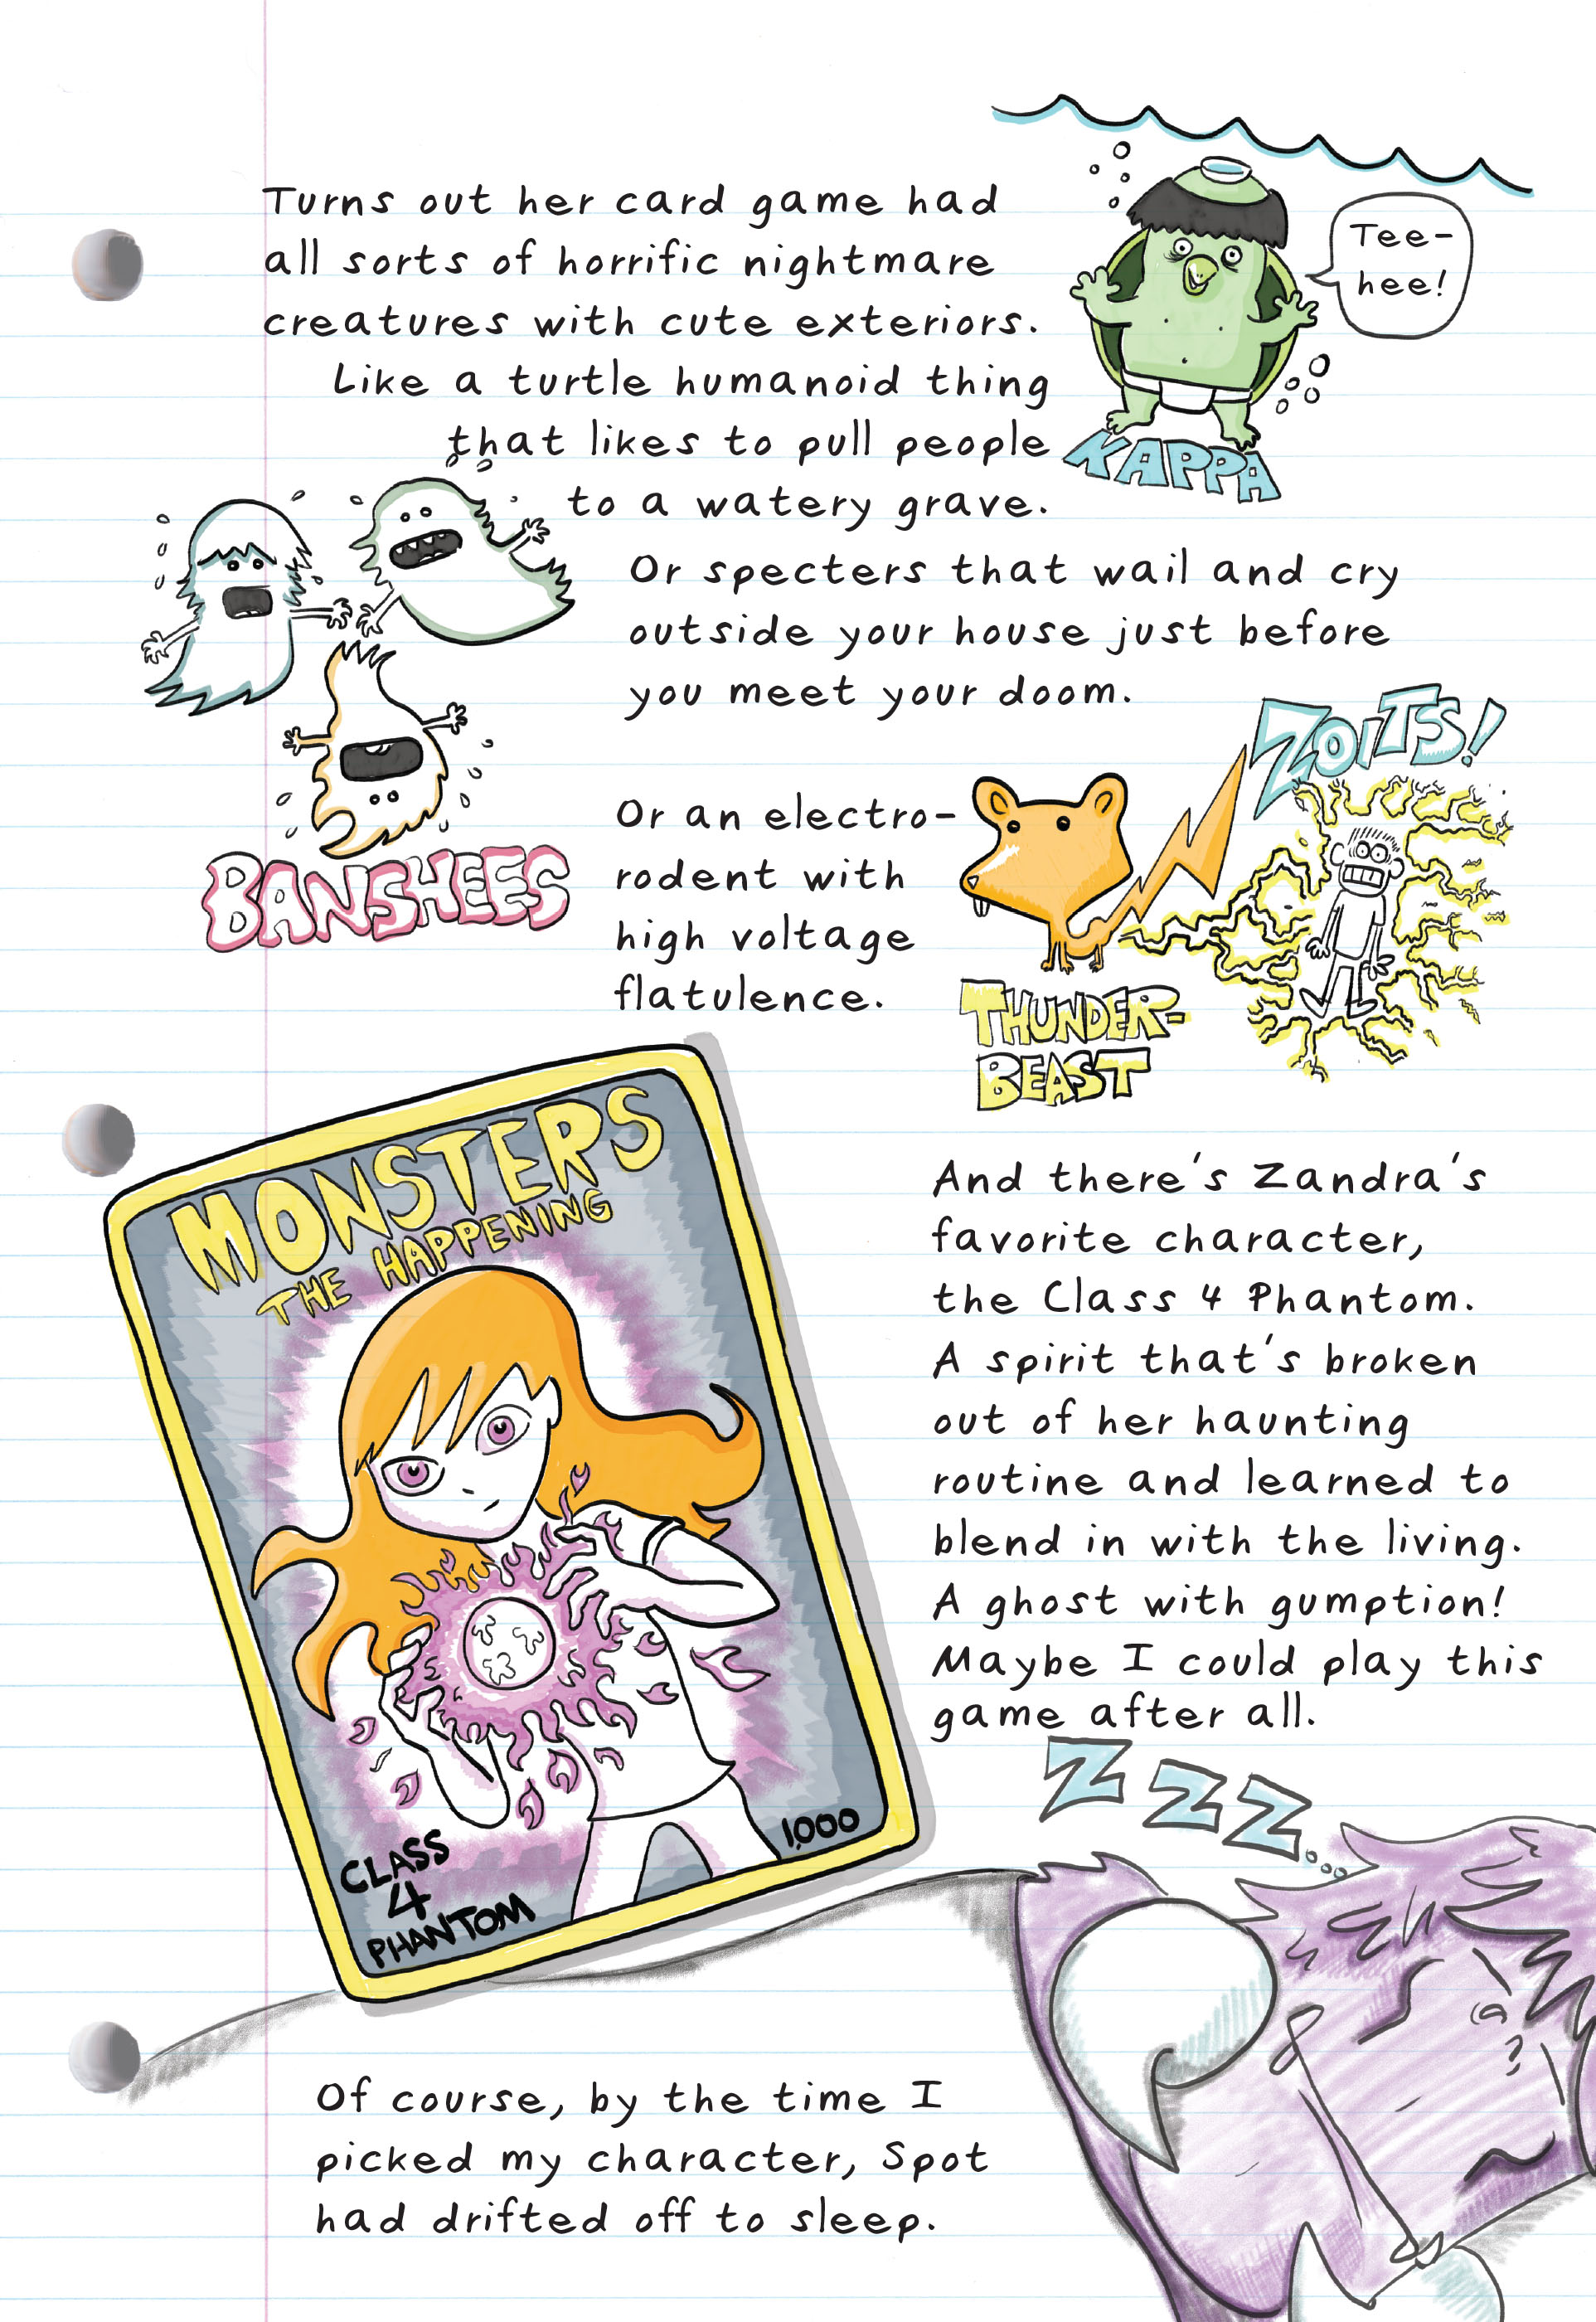 Turns out her card game had
all sorts of horrific nightmare
creatures with cute exteriors.
Like a turtle humanoid thing
that likes to pull people
to a watery grave.
Tee-
hee!
KAPPA
Or specters that wail and cry
outside your house just before
you meet your doom.
BANSHEES
Or an electro-
rodent with
high voltage
flatulence.
ZOITS!
THUNDER-
BEAST
MONSTERS
THE HAPPENING
CLASS
4
PHANTOM
1,000
And there's Zandra's
favorite character,
the Class 4 Phantom.
A spirit that's broken
out of her haunting
routine and learned to
blend in with the living.
A ghost with gumption!
Maybe I could play this
game after all.
ZZZ...
Of course, by the time I
picked my character, Spot
had drifted off to sleep.